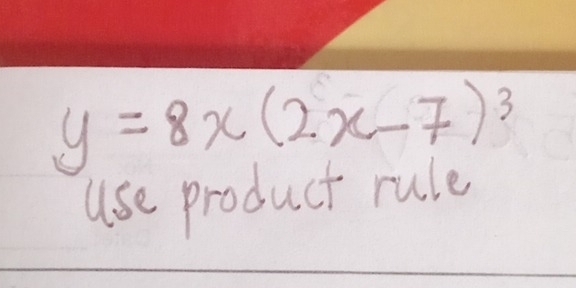 y = 8x(2x-7)³
use product rule